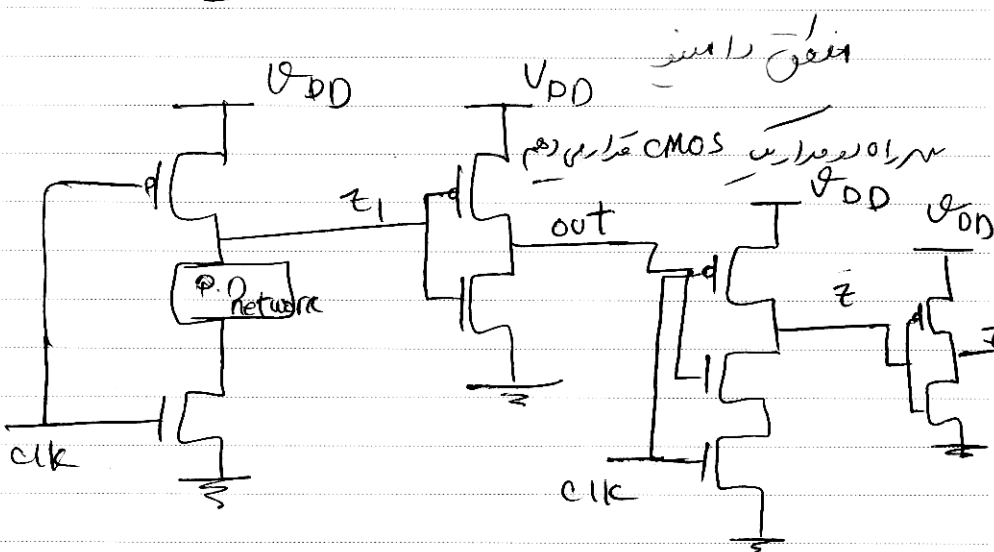 منطق دامینو
V_DD
V_DD
همراه دو مدار یک CMOS قرار می دهم
V_DD
V_DD
Z1
out
P.D
network
Z
clk
clk